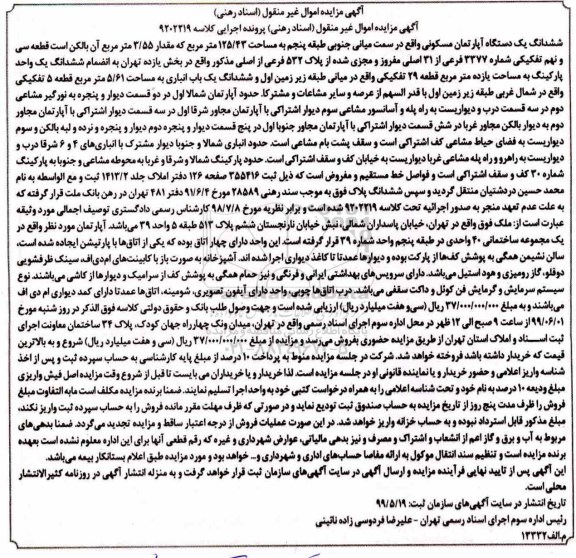 آگهی مزایده اموال غیر منقول (اسناد رهنی)
آگهی مزایده اموال غیر منقول (اسناد رهنی) پرونده اجرایی کلاسه ۹۲۰۲۲۱۹
ششدانگ یک دستگاه آپارتمان مسکونی واقع در سمت میانی جنوبی طبقه پنجم به مساحت ۱۲۵/۴۳ متر مربع که مقدار ۳/۵۵ متر مربع آن بالکن است قطعه سی
و نهم تفکیکی شماره ۳۳۷۷ فرعی از ۳۱ اصلی مفروز و مجزی شده از پلاک ۵۳۲ فرعی از اصلی مذکور واقع در بخش یازده تهران به انضمام ششدانگ یک واحد
پارکینگ به مساحت یازده متر مربع قطعه ۲۹ تفکیکی واقع در میانی طبقه زیر زمین اول و ششدانگ یک باب انباری به مساحت ۵/۶۱ متر مربع قطعه ۵ تفکیکی
واقع در شمال غربی طبقه زیر زمین اول با قدر السهم از عرصه و سایر مشاعات و مشترکا. حدود آپارتمان شمالا اول در دو قسمت دیوار و پنجره به نورگیر مشاعی
دوم در سه قسمت درب و دیواریست به راه پله و آسانسور مشاعی سوم دیوار اشتراکی با آپارتمان مجاور شرقا اول در سه قسمت دیوار اشتراکی با آپارتمان مجاور
دوم به دیوار بالکن مجاور غربا در شش قسمت دیوار اشتراکی با آپارتمان مجاور جنوبا اول در پنج قسمت دیوار و پنجره دوم دیوار و پنجره و نرده و لبه بالکن و سوم
دیواریست به فضای حیاط مشاعی کف اشتراکی است و سقف پشت بام مشاعی است. حدود انباری شمالا و جنوبا دیوار مشترک با انباری‌های ۴ و ۶ شرقا درب و
دیواریست به راهرو و راه پله مشاعی غربا دیواریست به خیابان کف و سقف اشتراکی است. حدود پارکینگ شمالا و شرقا و غربا به محوطه مشاعی و جنوبا به پارکینگ
شماره ۳۰ کف و سقف اشتراکی است و فواصل خط مستقیم و مفروض است که ذیل ثبت ۳۵۵۴۱۶ صفحه ۱۲۶ دفتر املاک جلد ۱۴۱۳/۲ ثبت و مع الواسطه به نام
محمد حسین دردشتیان منتقل گردید و سپس ششدانگ پلاک فوق به موجب سند رهنی ۲۸۵۸۹ مورخ ۹۱/۶/۴ دفتر ۴۸۱ تهران در رهن بانک ملت قرار گرفته که
به علت عدم تعهد منجر به صدور اجرائیه تحت کلاسه ۹۲۰۲۲۱۹ شده است و برابر نظریه مورخ ۹۸/۷/۸ کارشناس رسمی دادگستری توصیف اجمالی مورد وثیقه
عبارت است از: ملک فوق واقع در تهران، خیابان پاسداران شمالی، نبش خیابان نارنجستان ششم پلاک ۵۱۳ طبقه ۵ واحد ۳۹ می‌باشد. آپارتمان مورد نظر واقع در
یک مجموعه ساختمانی ۴۰ واحدی در طبقه پنجم واحد شماره ۳۹ قرار گرفته است. این واحد دارای چهار اتاق بوده که یکی از اتاق‌ها با پارتیشن ایجاده شده است،
سالن نشیمن همگی به پوشش کف‌ها از پارکت بوده و دیوارها عمدتا تا کاغذ دیواری اجرا شده اند. آشپزخانه به صورت باز با کابینت‌های ام‌دی‌اف، سینک ظرفشویی
دوقلو، گاز رومیزی و هود استیل می‌باشد. دارای سرویس‌های بهداشتی ایرانی و فرنگی و نیز حمام همگی به پوشش کف از سرامیک و دیوارها از کاشی می‌باشند. نوع
سیستم سرمایش و گرمایش فن کوئل و داکت سقفی می‌باشد. درب اتاق‌ها چوبی، واحد دارای آیفون تصویری، شومینه، اتاق‌ها عمدتا دارای کمد دیواری ام دی اف
می‌باشند و به مبلغ ۳۷/۰۰۰/۰۰۰/۰۰۰ ریال (سی و هفت میلیارد ریال) ارزیابی شده است و جهت وصول طلب بانک و حقوق دولتی کلاسه فوق الذکر در روز شنبه مورخ
۹۹/۰۶/۰۱ از ساعت ۹ صبح الی ۱۲ ظهر در محل اداره سوم اجرای اسناد رسمی واقع در تهران، میدان ونک چهارراه جهان کودک، پلاک ۳۴ ساختمان معاونت اجرای
ثبت اســناد و املاک استان تهران از طریق مزایده حضوری بفروش می‌رسد و مزایده از مبلغ ۳۷/۰۰۰/۰۰۰/۰۰۰ ریال (سی و هفت میلیارد ریال) شروع و به بالاترین
قیمت که خریدار داشته باشد فروخته خواهد شد. شرکت در جلسه مزایده منوط به پرداخت ۱۰ درصد از مبلغ پایه کارشناسی به حساب سپرده ثبت و پس از اخذ
شناسه واریز اعلامی و حضور خریدار و یا نماینده قانونی او در جلسه مزایده است. لذا خریدار و یا خریداران می بایست تا قبل از شروع وقت مزایده اصل فیش واریزی
مبلغ ودیعه ۱۰ درصد به نام خود و تحت شناسه اعلامی را به همراه درخواست کتبی خود به واحد اجرا تسلیم نمایند. ضمنا برنده مزایده مکلف است مابه التفاوت مبلغ
فروش را ظرف مدت پنج روز از تاریخ مزایده به حساب صندوق ثبت تودیع نماید و در صورتی که ظرف مهلت مقرر مانده فروش را به حساب سپرده ثبت واریز نکند،
مبلغ مذکور قابل استرداد نبوده و به حساب خزانه واریز خواهد شد. در این صورت عملیات فروش از درجه اعتبار ساقط و مزایده تجدید می‌گردد. ضمنا بدهی‌های
مربوط به آب و برق و گاز اعم از انشعاب و اشتراک و مصرف و نیز بدهی مالیاتی، عوارض شهرداری و غیره که رقم قطعی آنها برای این اداره معلوم نشده است بعهده
برنده مزایده است و تنظیم سند انتقال موکول به ارائه مفاصا حساب‌های اداری و شهرداری و... خواهد بود و مورد مزایده طبق اعلام بستانکار بیمه می‌باشد.
این آگهی پس از تایید نهایی فرآینده مزایده و ارسال آگهی در سایت آگهی‌های سازمان ثبت قرار خواهد گرفت و به منزله انتشار آگهی در روزنامه کثیرالانتشار
محلی است.
تاریخ انتشار در سایت آگهی‌های سازمان ثبت: ۹۹/۵/۱۹
رئیس اداره سوم اجرای اسناد رسمی تهران - علیرضا فردوسی زاده نائینی
م.الف ۱۳۳۳۲